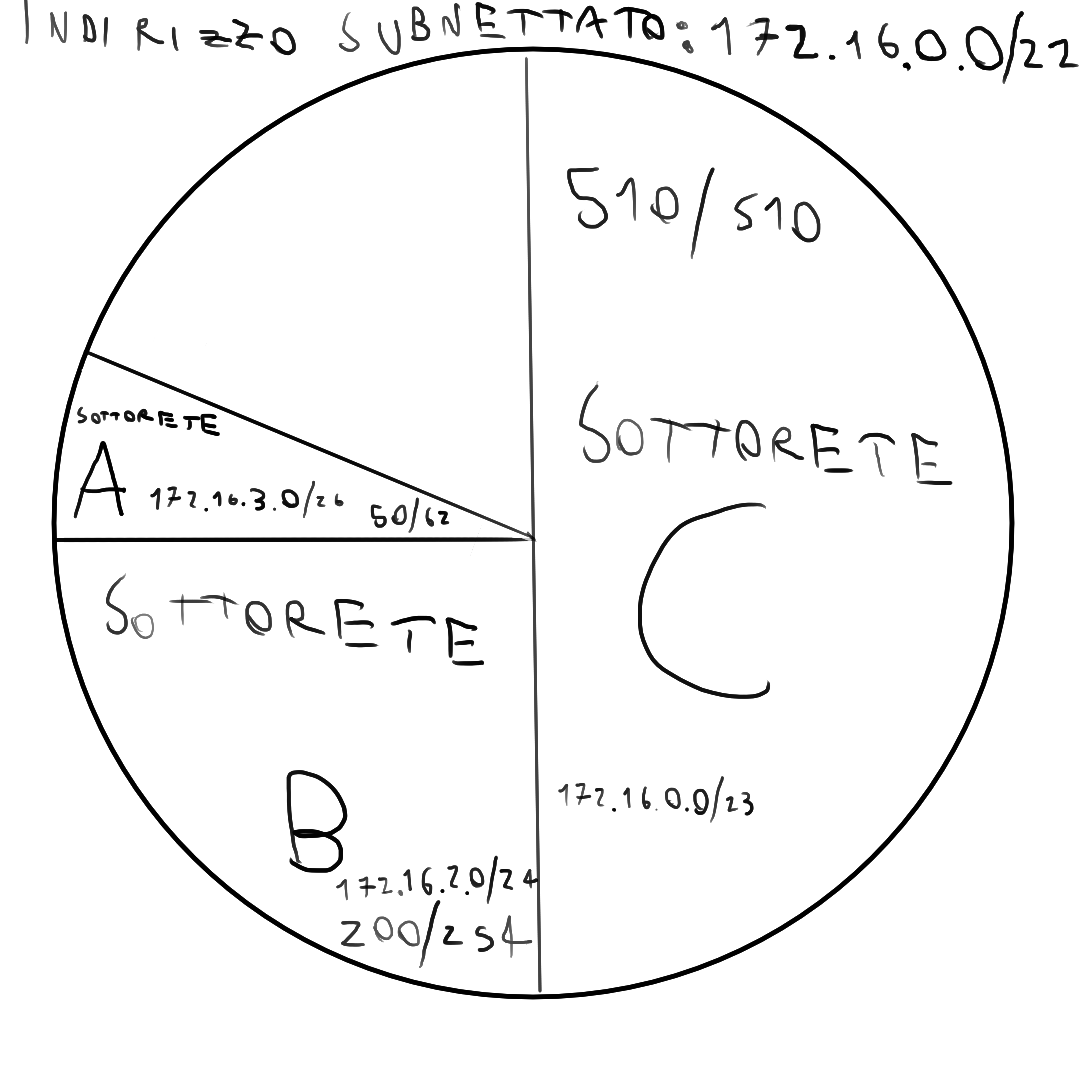 INDIRIZZO SUBNETTATO: 172.16.0.0/22
510/510
SOTTORETE
C
172.16.0.0/23
SOTTORETE
A 172.16.3.0/26 50/62
SOTTORETE
B
172.16.2.0/24
200/254